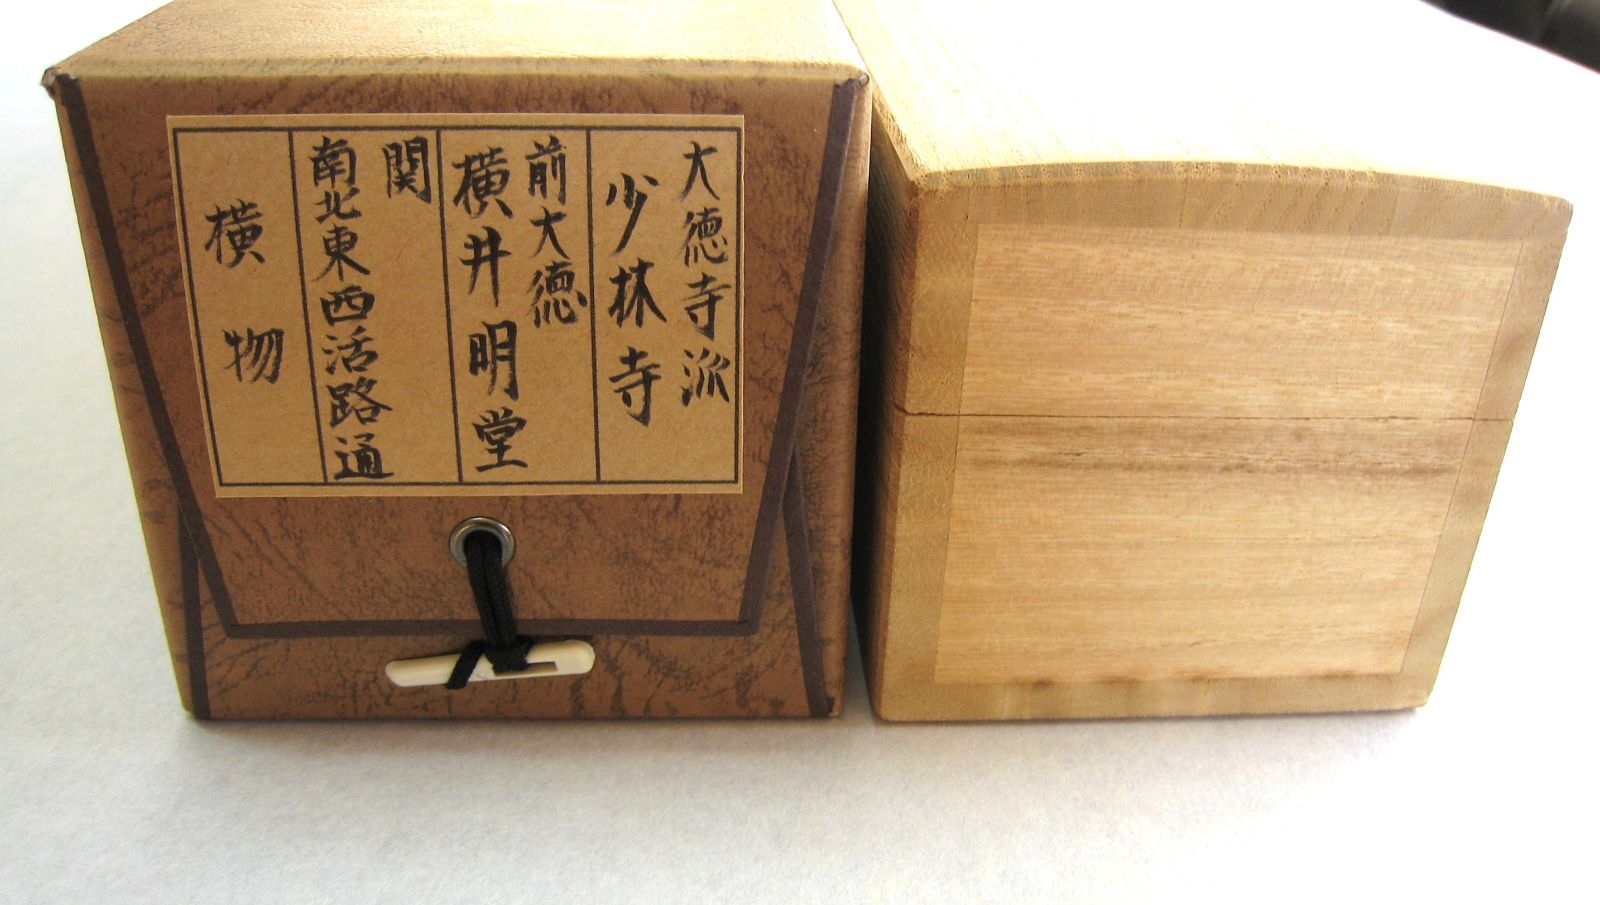 大徳寺派
少林寺
前大徳
横井明堂
関
南北東西活路通
横物